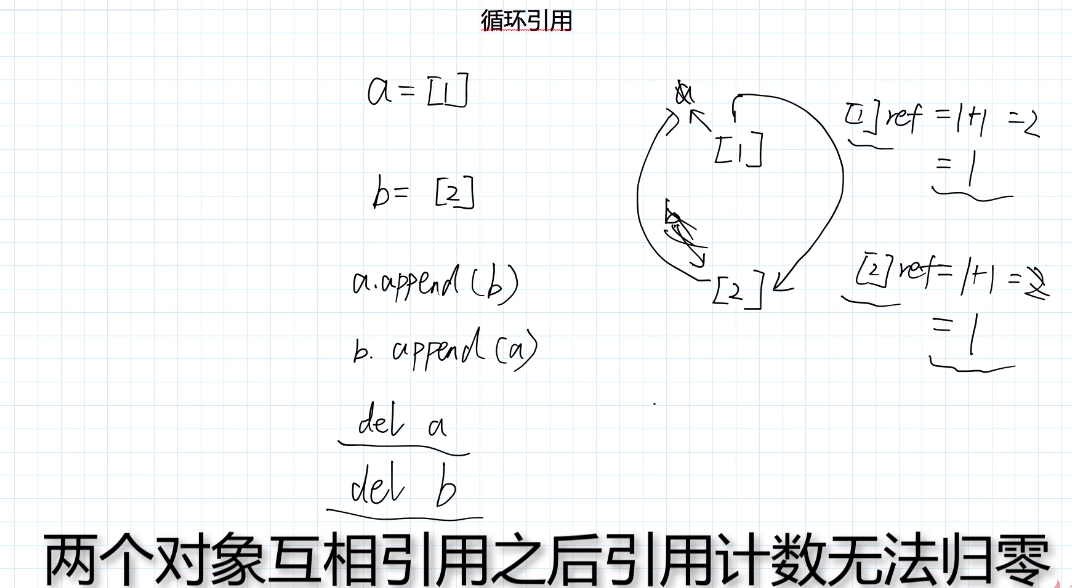 循环引用
a = [1]
b = [2]
a.append(b)
b. append(a)
del a
del b
a
[1]
b
[2]
[1] ref = 1+1 = 2
= 1
[2] ref = 1+1 = 2
= 1
两个对象互相引用之后引用计数无法归零